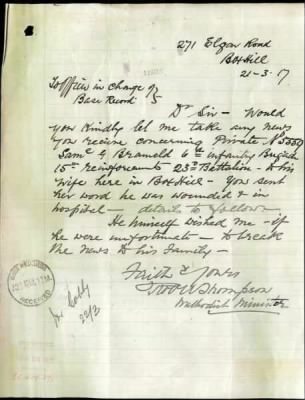 271 Elgar Road
Box Hill
21-3-17
To Officer in Charge of
Base Records
Dr Sir - Would
you kindly let me take any news
you receive concerning Private No 5550
Saml G Brameld 6th Infantry Brigade
15th Reinforcements 23rd Battalion - to his
wife here in Box Hill - You sent
her word he was wounded & in
hospital - details to follow
He himself wished me - if
he were unfortunate - to break
the news to his Family -
Faith'y Yours
Thompson
Methodist Minister
RECEIVED
22/3